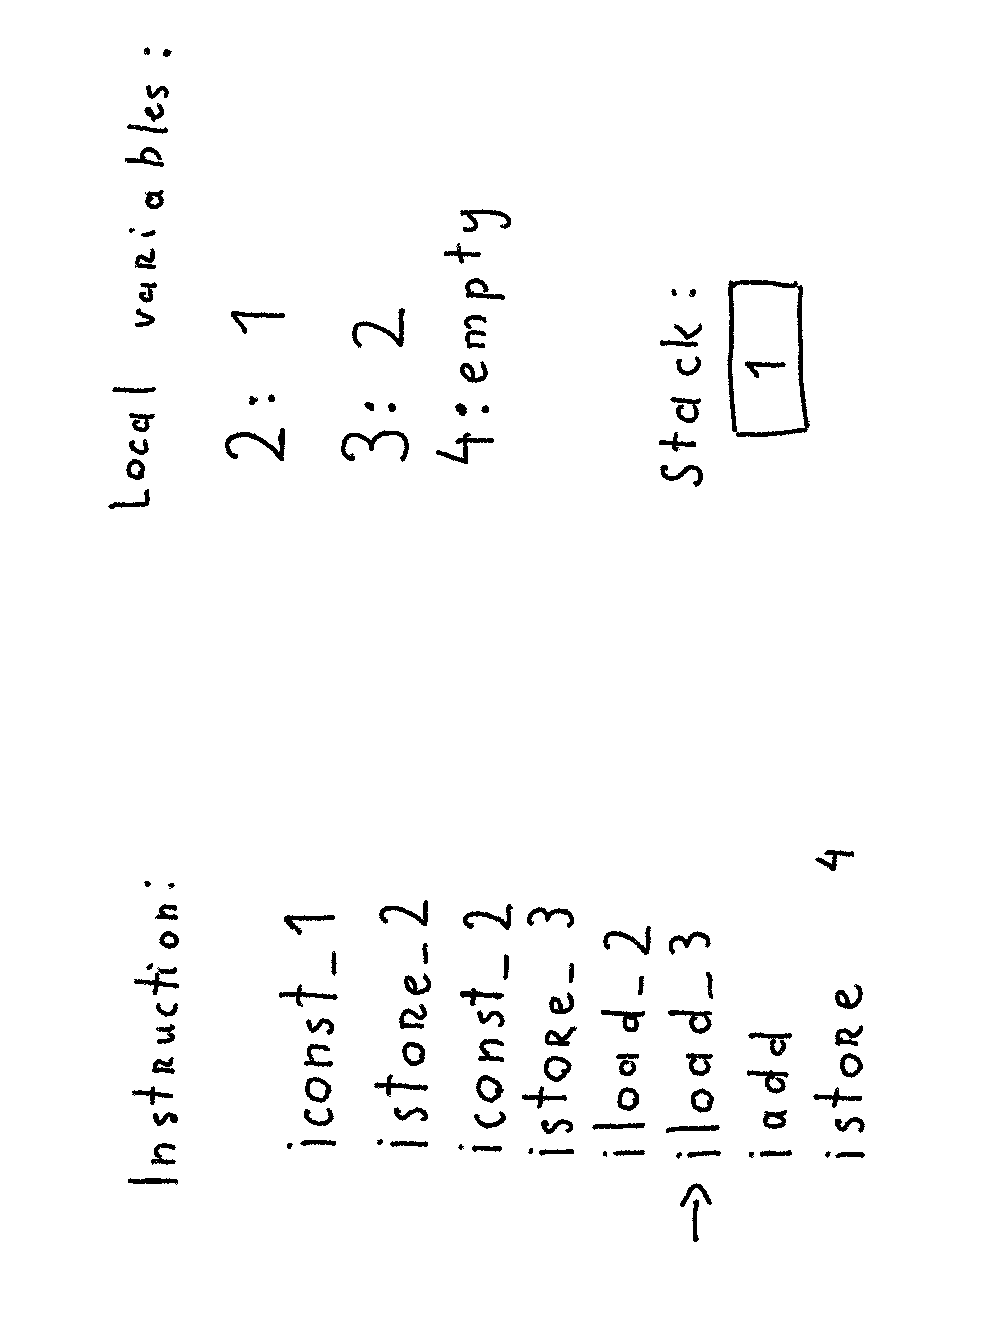 Instruction:
iconst_1
istore_2
iconst_2
istore_3
iload_2
→ iload_3
iadd
istore 4
Local variables:
2: 1
3: 2
4: empty
Stack:
1